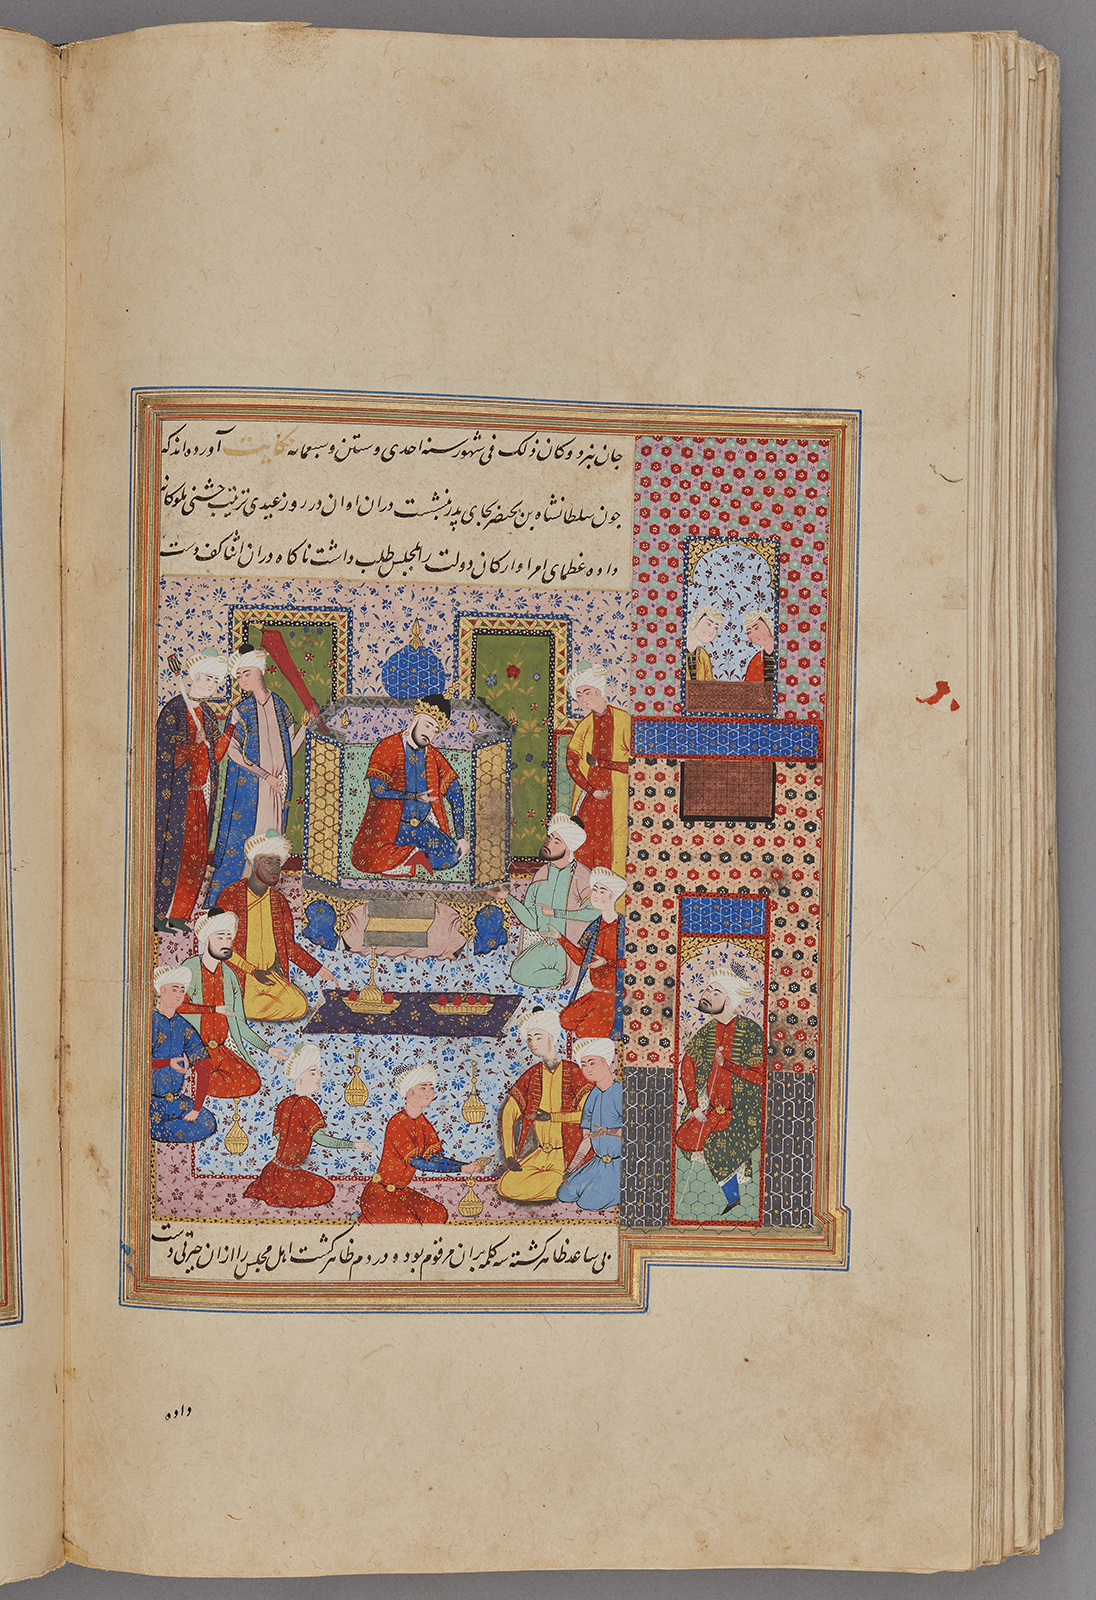 جان نبرد و کان ذلک فی شهور سنه احدی و ستین و سبعمایه حکایت آورده‌اند که
جون سلطانشاه بن بجای پدر بنشست دران اوان در روز عیدی ترتیب جشنی ملوکانه
داده عظمای امرا و ارکان دولت را بمجلس طلب داشت ناکاه دران اثنا کف دست
بی ساعد ظاهر کشته سه کلمه بران مرقوم بود و در دم ظاهر کشت اهل مجلس را ازان حیرتی دست
داده